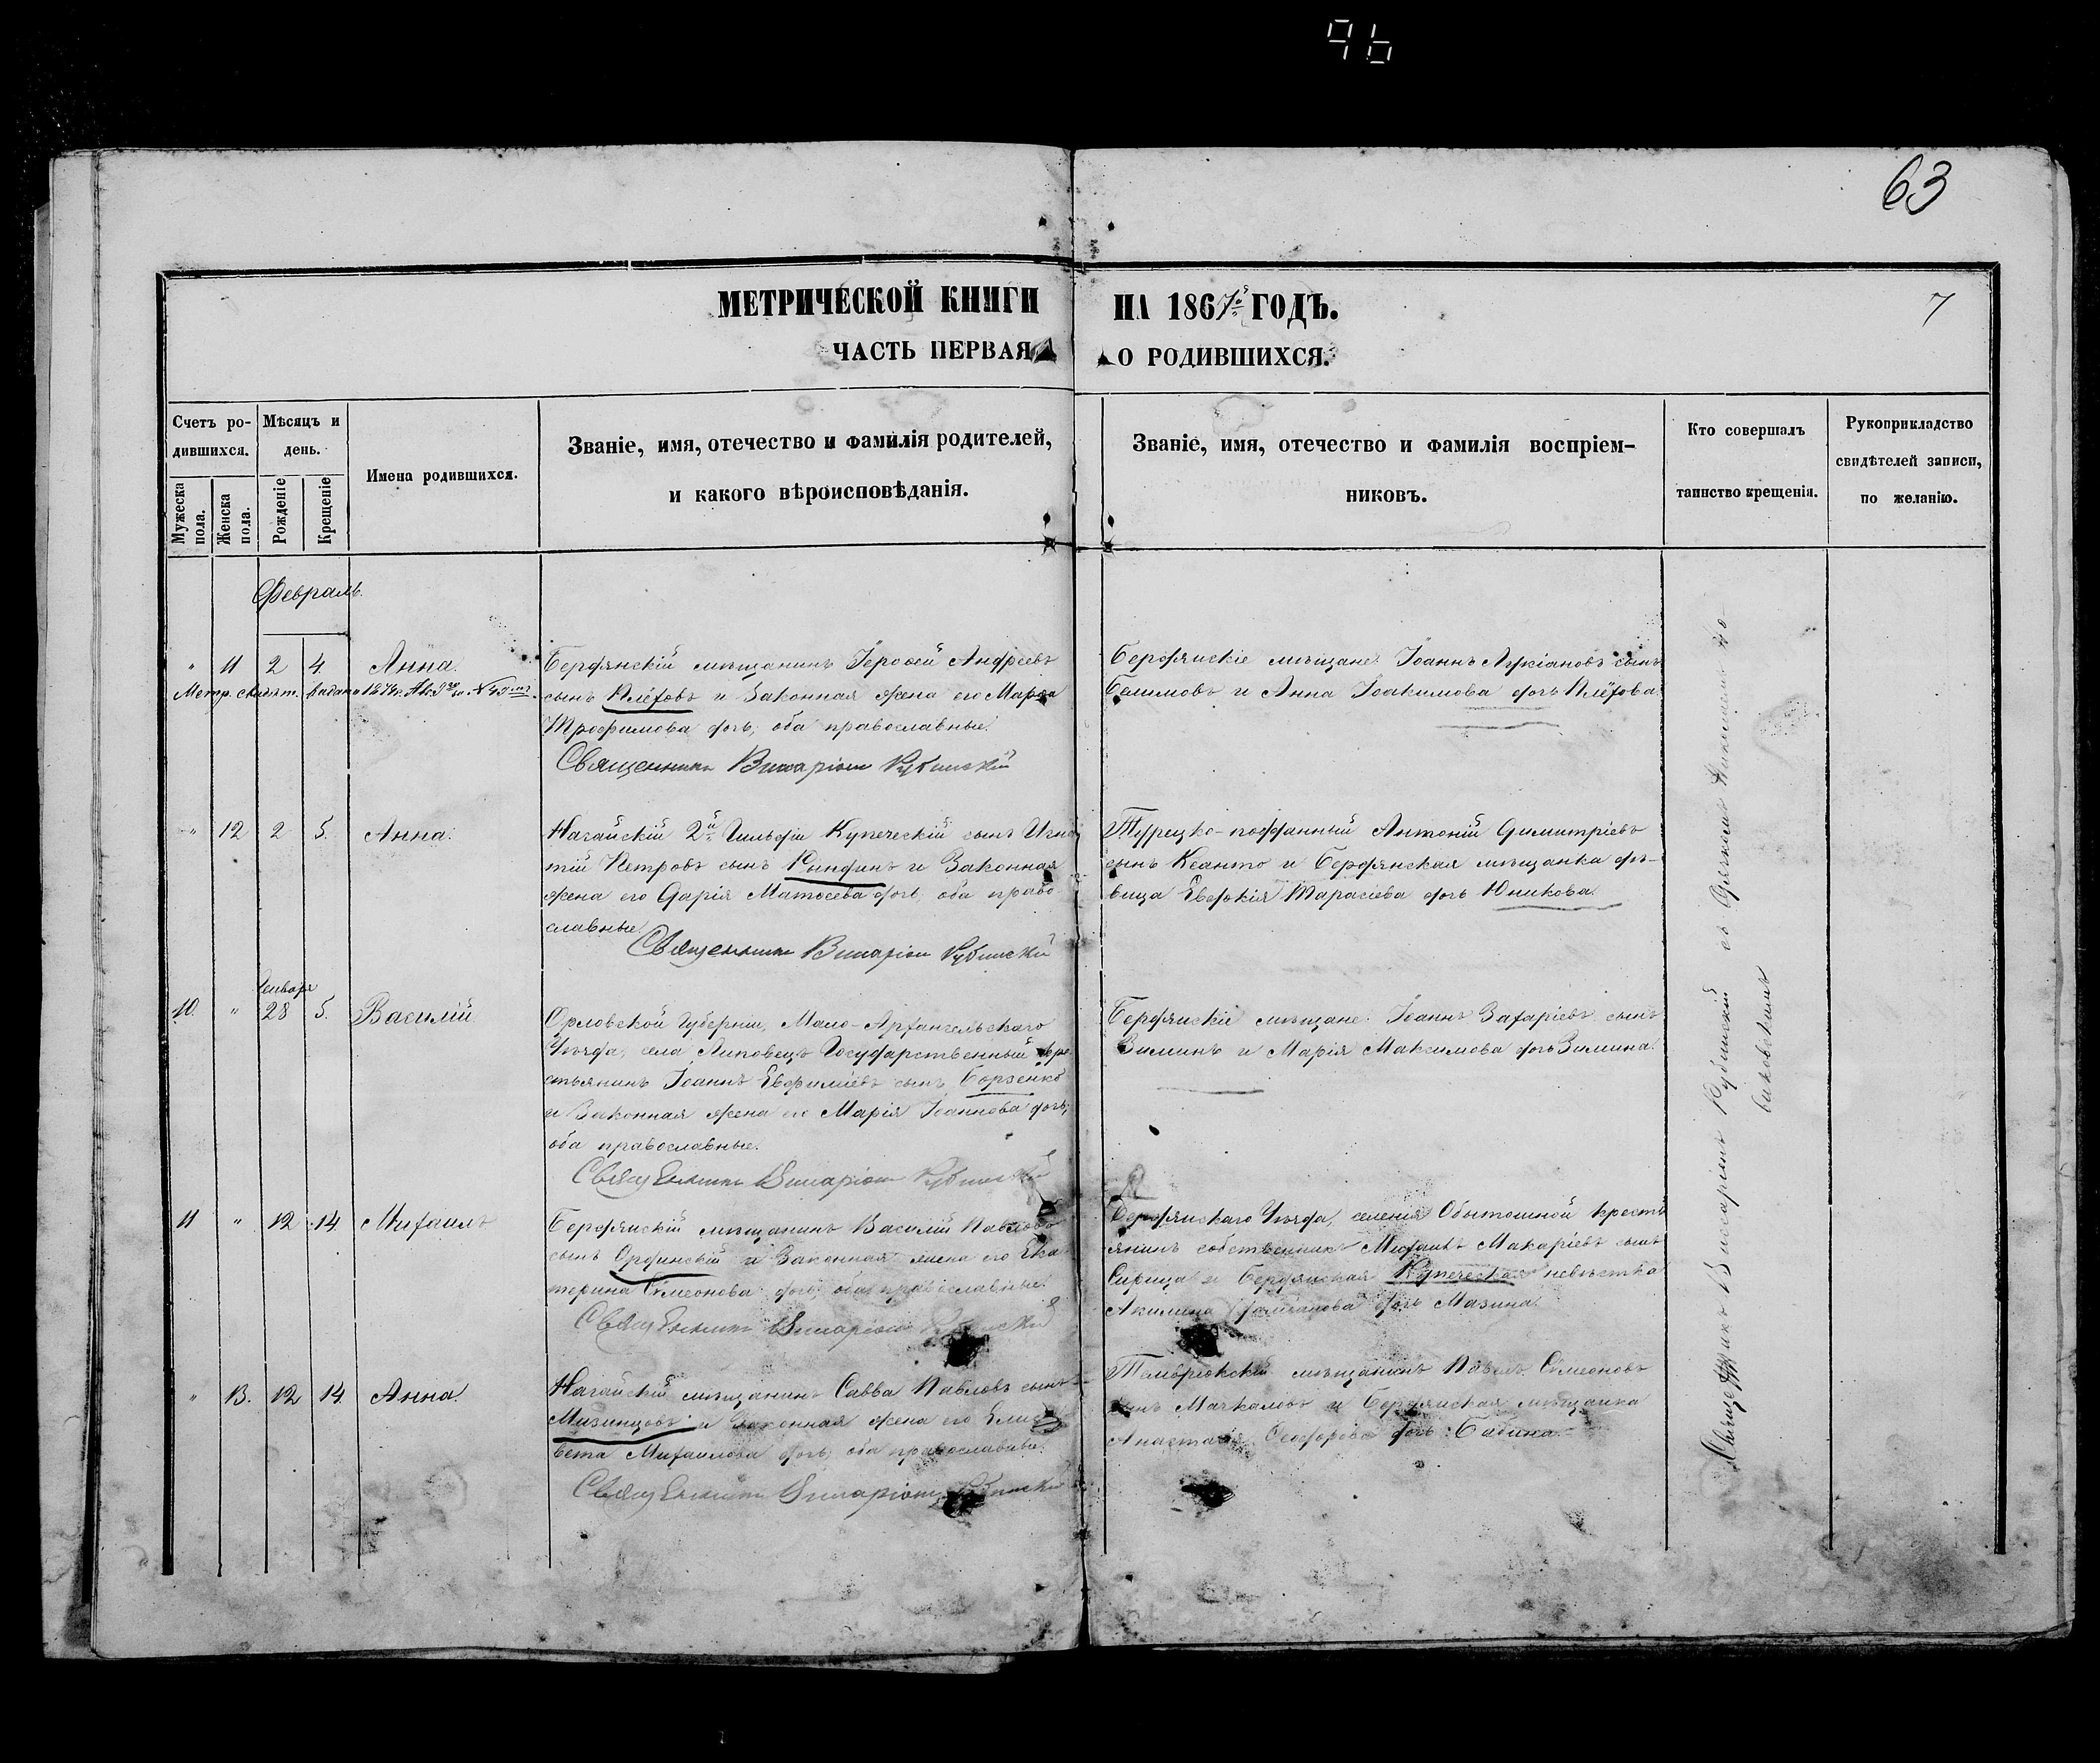 96
63
МЕТРИЧЕСКОЙ КНИГИ НА 1867й ГОДЪ.
7
ЧАСТЬ ПЕРВАЯ О РОДИВШИХСЯ.
Счетъ ро-
дившихся.
Мужеска
пола.
Женска
пола.
Мѣсяцъ и
день.
Рожденіе
Крещеніе
Имена родившихся.
Званіе, имя, отечество и фамилія родителей,
и какого вѣроисповѣданія.
Званіе, имя, отечество и фамилія воспріем-
никовъ.
Кто совершалъ
таинство крещенія.
Рукоприкладство
свидѣтелей записи,
по желанію.
Февраль.
" 11 2 4. Анна.
Метр. свидѣт. выдано 1874 г.
Бердянскій мѣщанинъ Іероѳей Андреевъ
сынъ Плёховъ и Законная жена его Марѳа
Трофимова дочь, оба православные.
Священникъ Виссаріонъ Рубинскій
Бердянскіе мѣщане: Іоаннъ сынъ
и Анна Іоакимова дочь Плёхова.
" 12 2 5. Анна.
Ногайскій 2й Гильдіи Купеческій сынъ Игна
тій Петровъ сынъ Рындинъ и Законная
жена его Дарія Матѳеева дочь, оба право
славные.
Священникъ Виссаріонъ Рубинскій
Турецко-подданный Антоній Димитріевъ
сынъ Ксанто и Бердянская мѣщанка дѣ-
вица Евдокія Тарасіева дочь Юникова.
Января
10. " 28 5. Василій
Орловской Губерніи, Мало-Архангельскаго
Уѣзда, села Липовецъ Государственный кре
стьянинъ Іоаннъ Евфиміевъ сынъ Борзенко
и Законная жена его Марія Іоаннова дочь,
оба православные.
Священникъ Виссаріонъ Рубинскій
Бердянскіе мѣщане: Іоаннъ Захаріевъ сынъ
Зиминъ и Марія Максимова дочь Зимина.
11 " 12 14 Михаилъ
Бердянскій мѣщанинъ Василій Павловъ
сынъ Ординскій и Законная жена его Ека
терина Симеонова дочь, оба православные.
Священникъ Виссаріонъ Рубинскій
Бердянскаго Уѣзда, селенія Обыточной кресть
янинъ собственникъ Михаилъ Макаріевъ сынъ
Сирица и Бердянская Купеческая невѣстка
Акилина дочь Мазина.
" 13. 12 14. Анна.
Ногайскій мѣщанинъ Савва Павловъ сынъ
Мизинцовъ и Законная жена его Елиса
вета Михаилова дочь, оба православные.
Священникъ Виссаріонъ Рубинскій
Темрюкскій мѣщанинъ Павелъ Симеоновъ
сынъ Мачкаловъ и Бердянская мѣщанка
Анастасія Ѳеодорова дочь Бабина.
Священникъ Виссаріонъ Рубинскій съ Дьякономъ